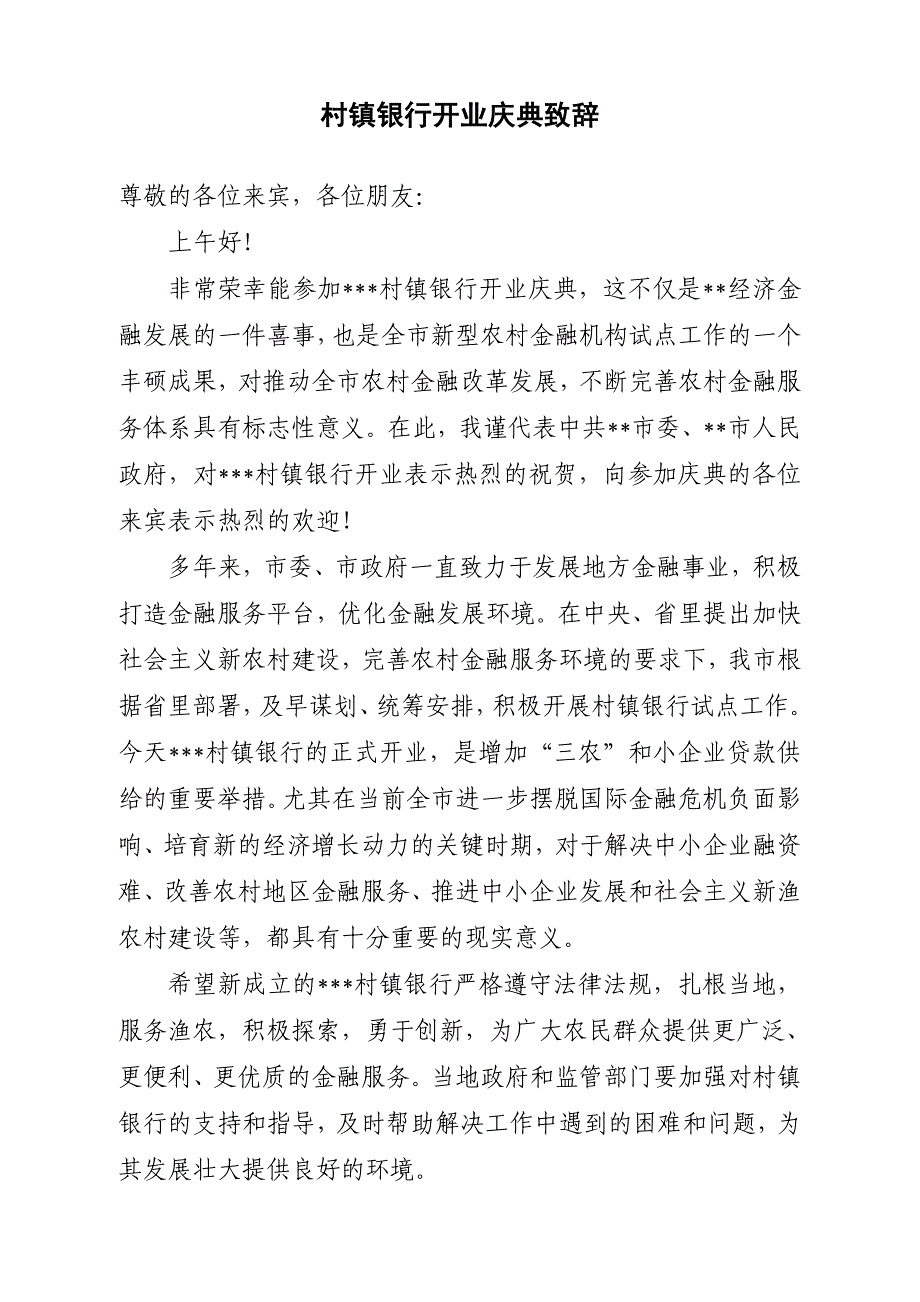 村镇银行开业庆典致辞
尊敬的各位来宾，各位朋友：
上午好！
非常荣幸能参加***村镇银行开业庆典，这不仅是**经济金
融发展的一件喜事，也是全市新型农村金融机构试点工作的一个
丰硕成果，对推动全市农村金融改革发展，不断完善农村金融服
务体系具有标志性意义。在此，我谨代表中共**市委、**市人民
政府，对***村镇银行开业表示热烈的祝贺，向参加庆典的各位
来宾表示热烈的欢迎！
多年来，市委、市政府一直致力于发展地方金融事业，积极
打造金融服务平台，优化金融发展环境。在中央、省里提出加快
社会主义新农村建设，完善农村金融服务环境的要求下，我市根
据省里部署，及早谋划、统筹安排，积极开展村镇银行试点工作。
今天***村镇银行的正式开业，是增加“三农”和小企业贷款供
给的重要举措。尤其在当前全市进一步摆脱国际金融危机负面影
响、培育新的经济增长动力的关键时期，对于解决中小企业融资
难、改善农村地区金融服务、推进中小企业发展和社会主义新渔
农村建设等，都具有十分重要的现实意义。
希望新成立的***村镇银行严格遵守法律法规，扎根当地，
服务渔农，积极探索，勇于创新，为广大农民群众提供更广泛、
更便利、更优质的金融服务。当地政府和监管部门要加强对村镇
银行的支持和指导，及时帮助解决工作中遇到的困难和问题，为
其发展壮大提供良好的环境。